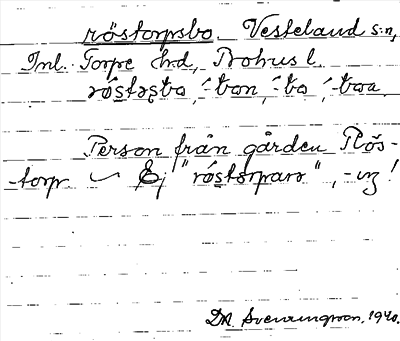 röstorpsbo. Vesteland s:n,
Inl. Torpe hd, Bohus l.
-bon, -bo, -boa
Person från gården Rös-
-torp ~ Ej "röstorpare", -in!
DA. Svenningson, 1940.